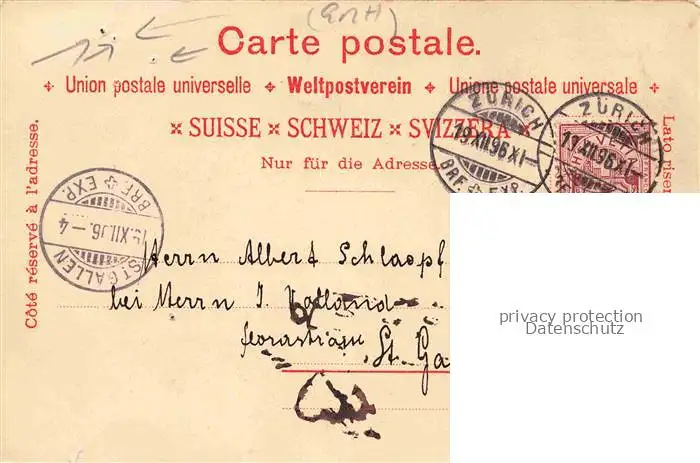 (GMH)
Carte postale.
Union postale universelle Weltpostverein Unione postale universale
SUISSE SCHWEIZ SVIZZERA
Nur für die Adresse.
Côté réservé à l'adresse.
Lato riser
ZÜRICH
19.XII.96.XI-
BRF. EXP.
ZÜRICH
19.XII.96.XI-
ST. GALLEN
19.XII.96.-4
BRF. EXP.
Herrn Albert Schlaepf
bei Herrn J. Volland
Florastrasse
St. Ga
privacy protection
Datenschutz